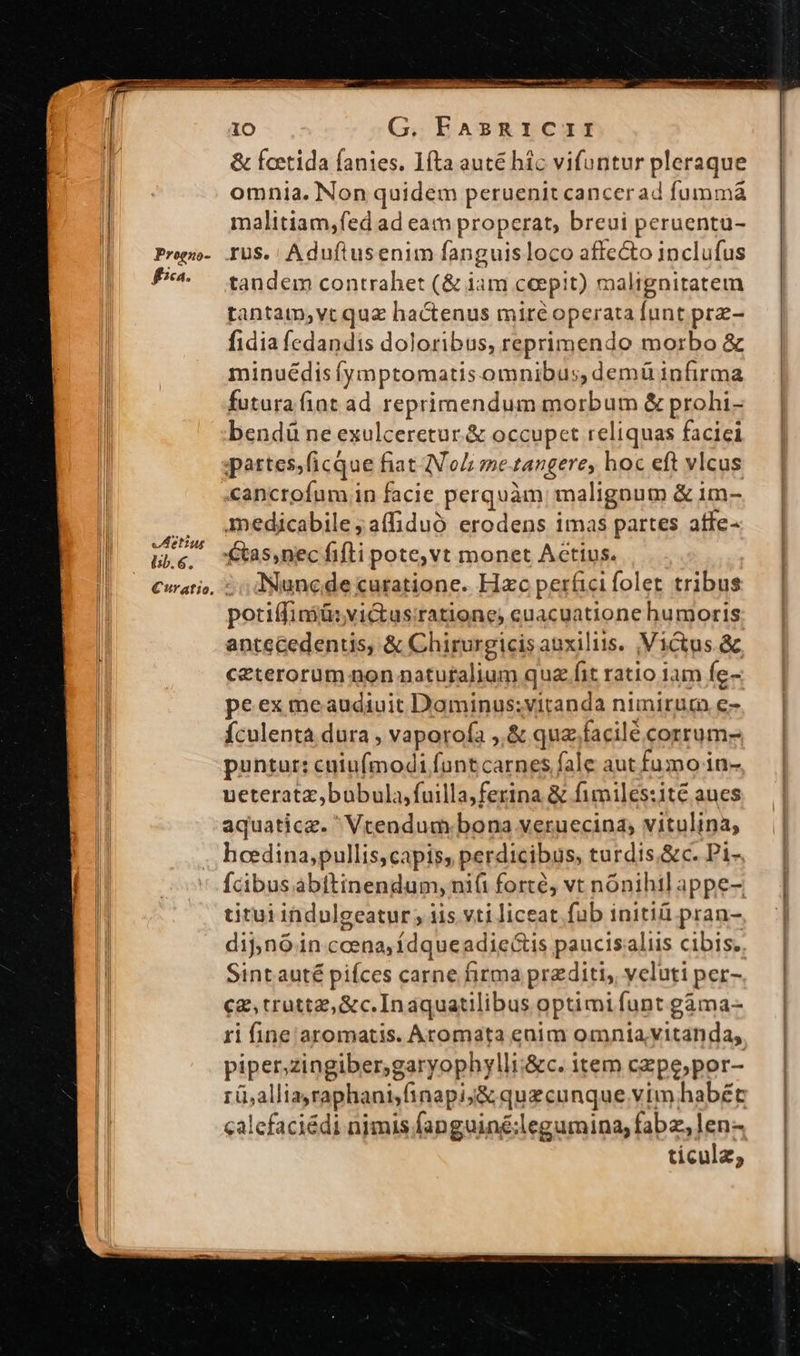 10 G. FABRICII
& fœtida ſanies. Iſta autē hîc viſuntur pleraque
omnia. Non quidem peruenit cancer ad ſummā
malitiam, ſed ad eam properat, breui peruentu-
Progno- rus. Aduſtus enim ſanguis loco affecto incluſus
ſtica. tandem contrahet (& iam cœpit) malignitatem
tantam, vt quæ hactenus mirè operata ſunt præ-
ſidia ſedandis doloribus, reprimendo morbo &
minuēdis ſymptomatis omnibus, demū infirma
futura ſint ad reprimendum morbum & prohi-
bendū ne exulceretur & occupet reliquas faciei
partes, ſicque fiat Noli me tangere, hoc eſt vlcus
cancroſum in facie perquàm malignum & im-
medicabile, aſſiduò erodens imas partes affe-
Aëtius
lib.6. ctas, nec ſiſti pote, vt monet Aëtius.
Curatio. Nunc de curatione. Hæc perfici ſolet tribus
potiſſimū: victus ratione, euacuatione humoris
antecedentis, & Chirurgicis auxiliis. Victus &
cæterorum non naturalium quæ ſit ratio iam ſę-
pe ex me audiuit Dominus: vitanda nimirum e-
ſculenta dura, vaporoſa, & quæ facilè corrum-
puntur: cuiuſmodi ſunt carnes ſale aut fumo in-
ueteratæ, bubula, ſuilla, ferina & ſimiles: itē aues
aquaticæ. Vtendum bona veruecina, vitulina,
hœdina, pullis, capis, perdicibus, turdis &c. Pi-
ſcibus abſtinendum, niſi fortè, vt nōnihil appe-
titui indulgeatur, iis vti liceat ſub initiū pran-
dij, nō in cœna, idque adiectis paucis aliis cibis.
Sint autē piſces carne firma præditi, veluti per-
cæ, truttæ, &c. In aquatilibus optimi ſunt gāma-
ri ſine aromatis. Aromata enim omnia vitanda,
piper, zingiber, garyophylli &c. item cæpe, por-
rū, allia, raphani, ſinapi, & quæcunque vim habēt
calefaciēdi nimis ſanguinē: legumina, fabæ, len-
ticulæ,